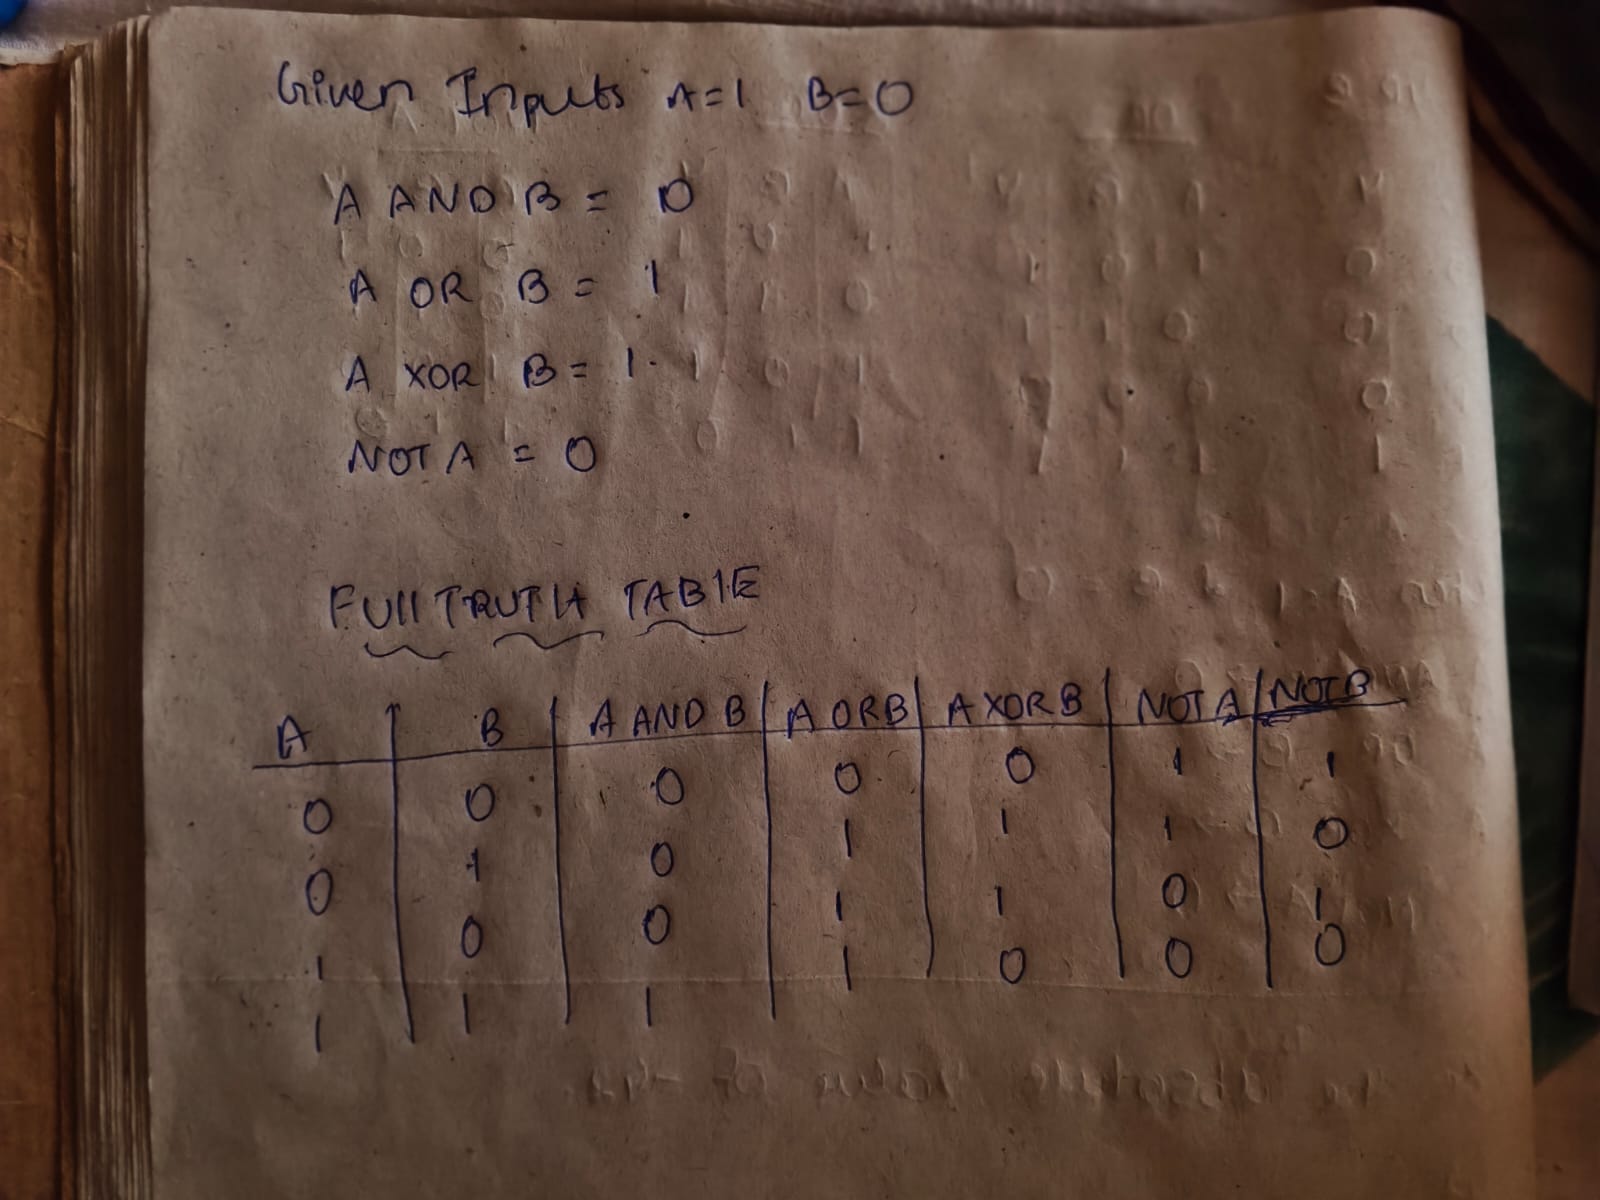 Given Inputs A=1 B=0
A AND B = 0
A OR B = 1
A XOR B = 1.
NOT A = 0
FUll TRUTH TABlE
A | B | A AND B | A OR B | A XOR B | NOT A | NOT B
0 0 0 0 0 1 1
0 1 0 1 1 1 0
1 0 0 1 1 0 1
1 1 1 1 0 0 0